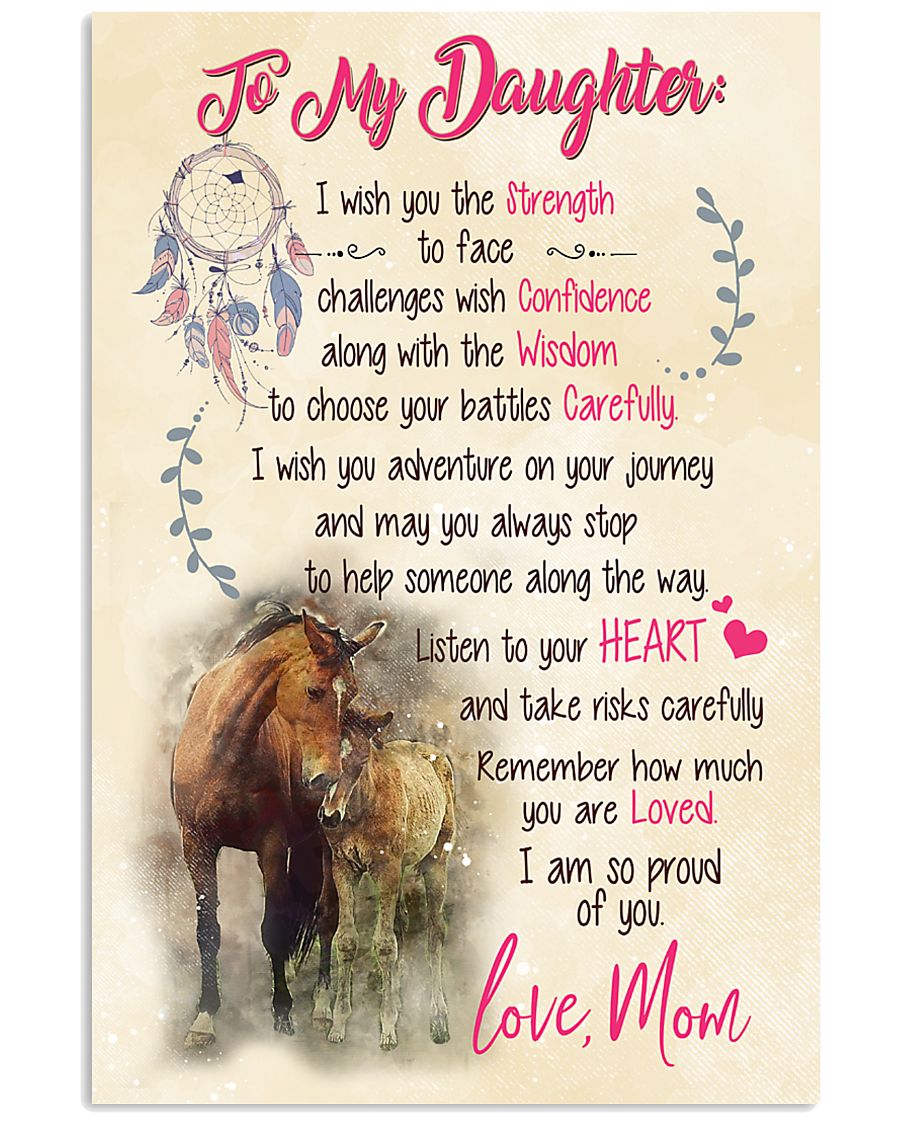 To My Daughter:
I wish you the Strength
to face
challenges wish Confidence
along with the Wisdom
to choose your battles Carefully.
I wish you adventure on your journey
and may you always stop
to help someone along the way.
Listen to your HEART
and take risks carefully
Remember how much
you are Loved.
I am so proud
of you.
love, Mom